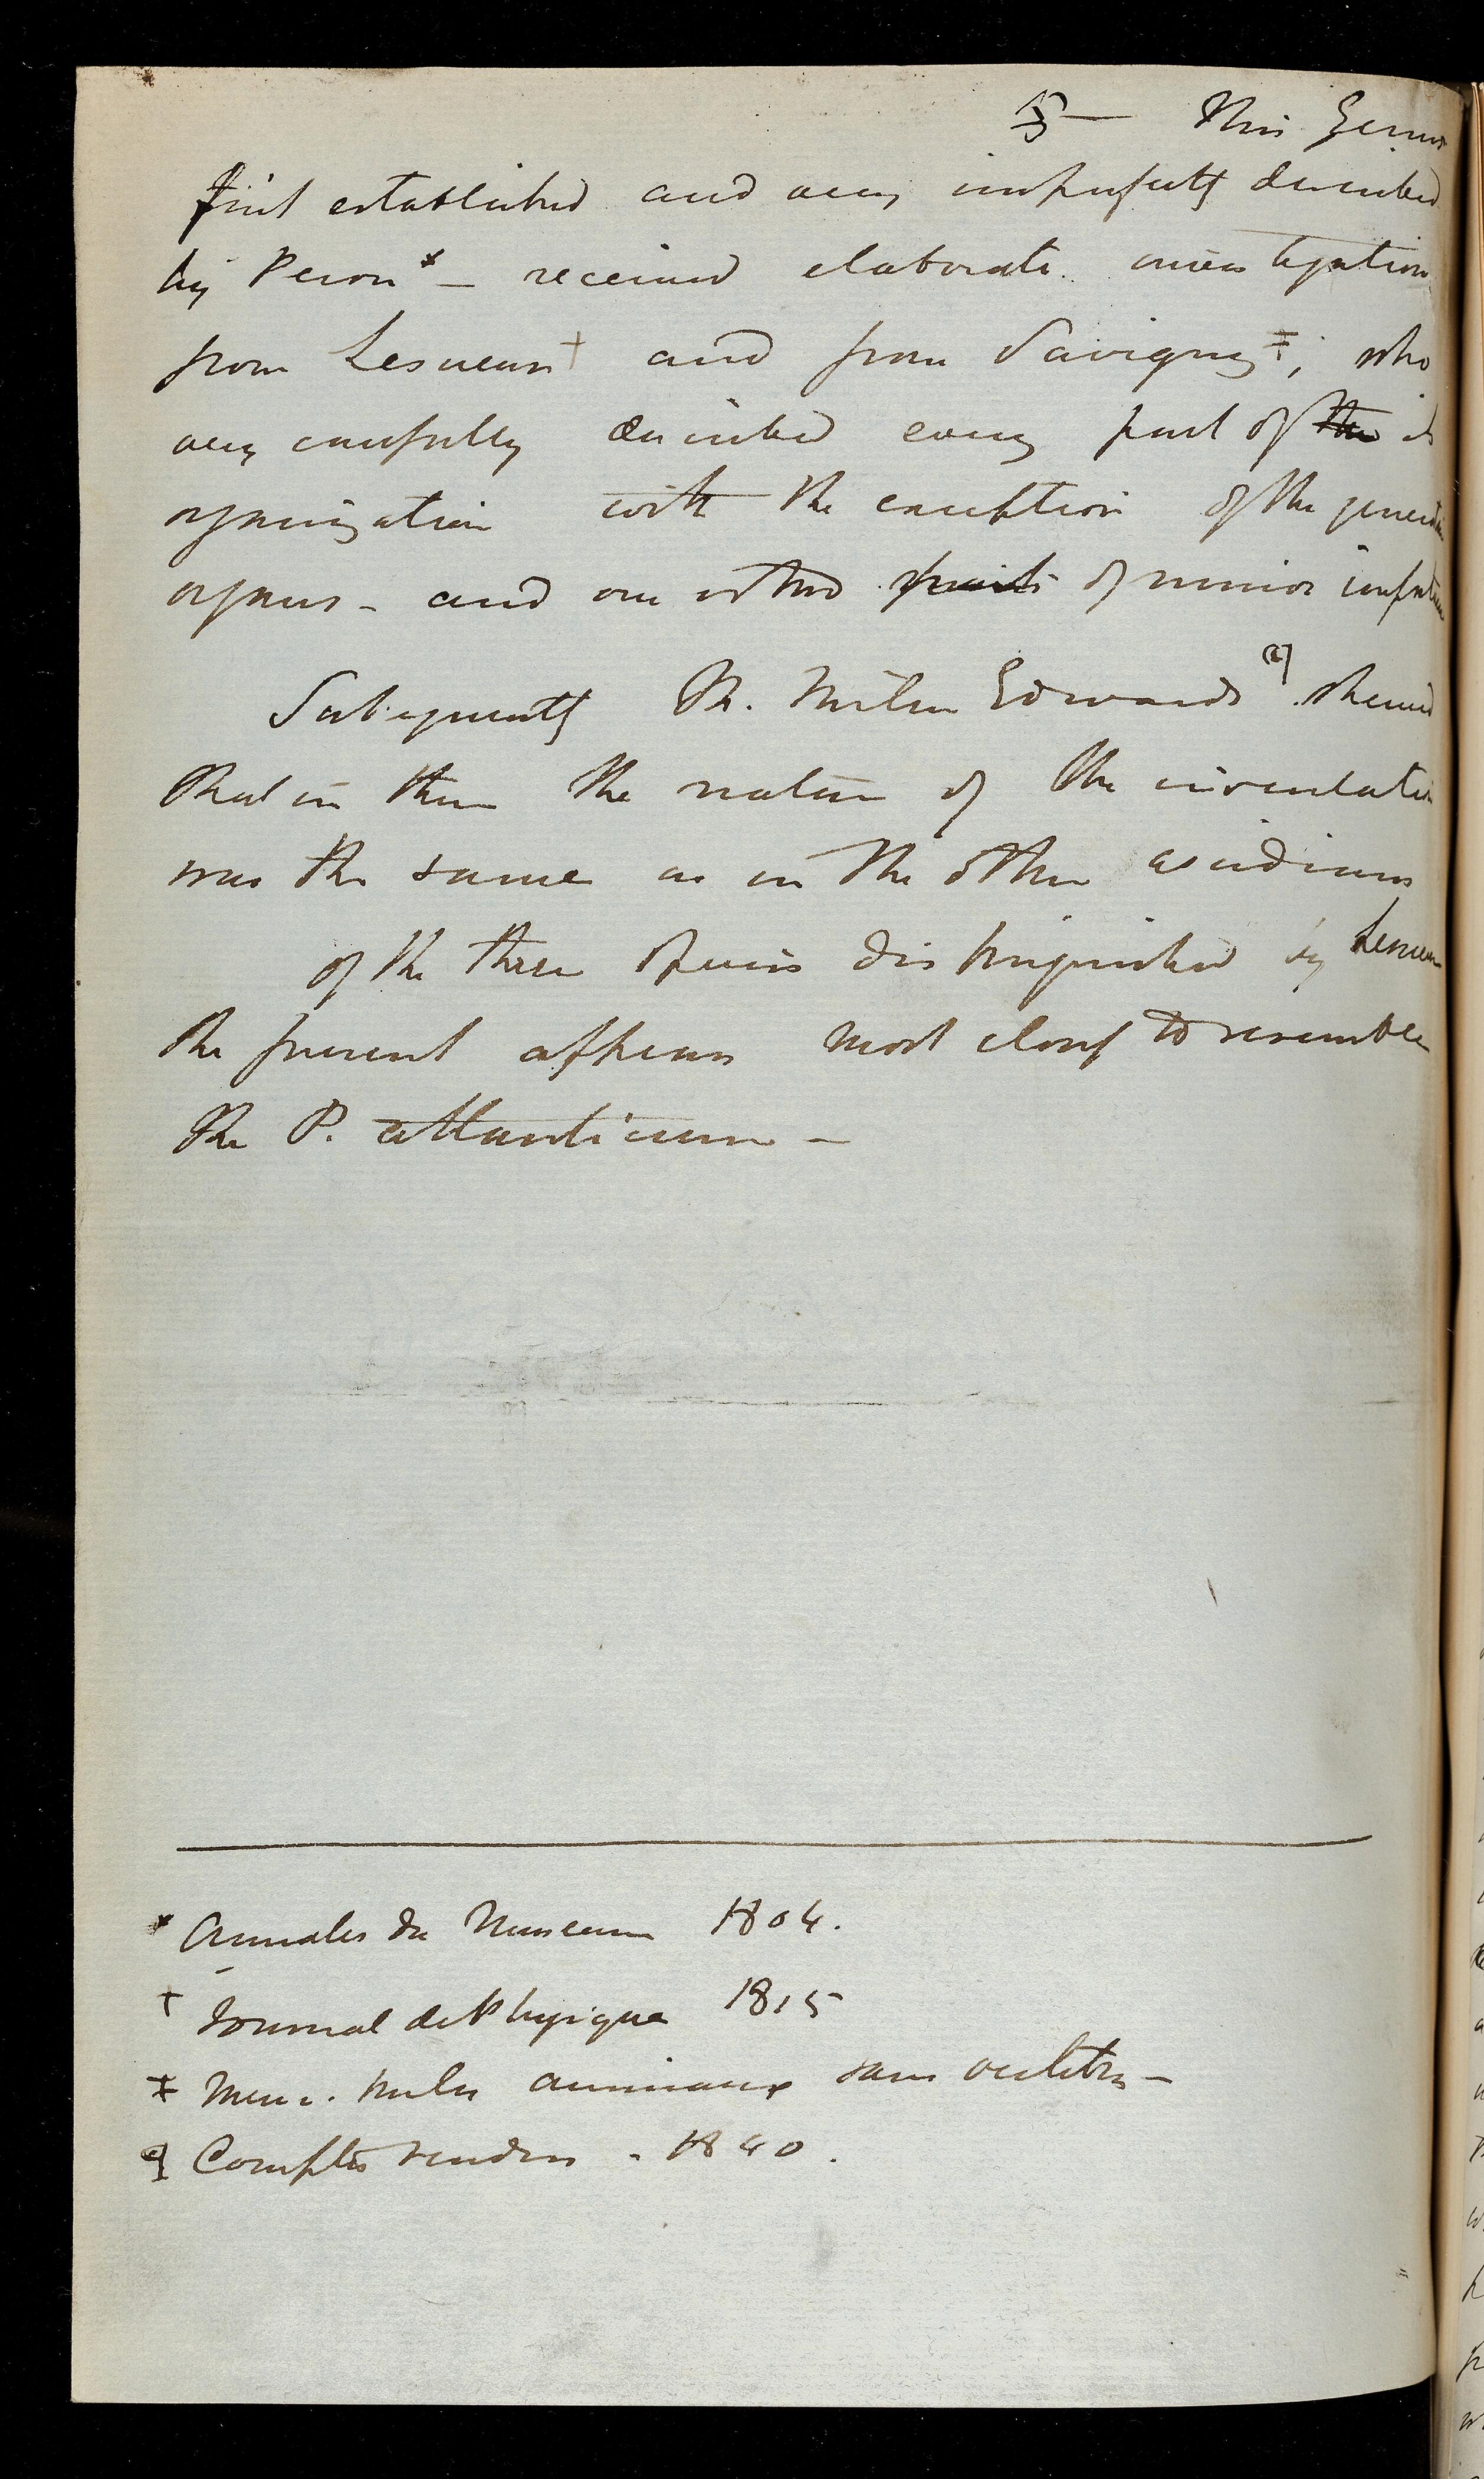 This Genus
first established and very imperfectly described
by Peron* – received elaborate investigation
from Lesueur† and from Savigny‡; who
very carefully described every part of the its
organization with the exception of the generative
organs – and one or two points of minor importance
Subsequently M. Milne Edwards shewed
that in them the nature of the circulation
was the same as in the other ascidians
of the three species distinguished by Lesueur
the present appears most closely to resemble
the P. atlanticum –
* Annales du Museum 1804.
† Journal de Physique 1815
‡ Mem. sur les animaux sans vertebres –
Comptes rendus . 1840 .